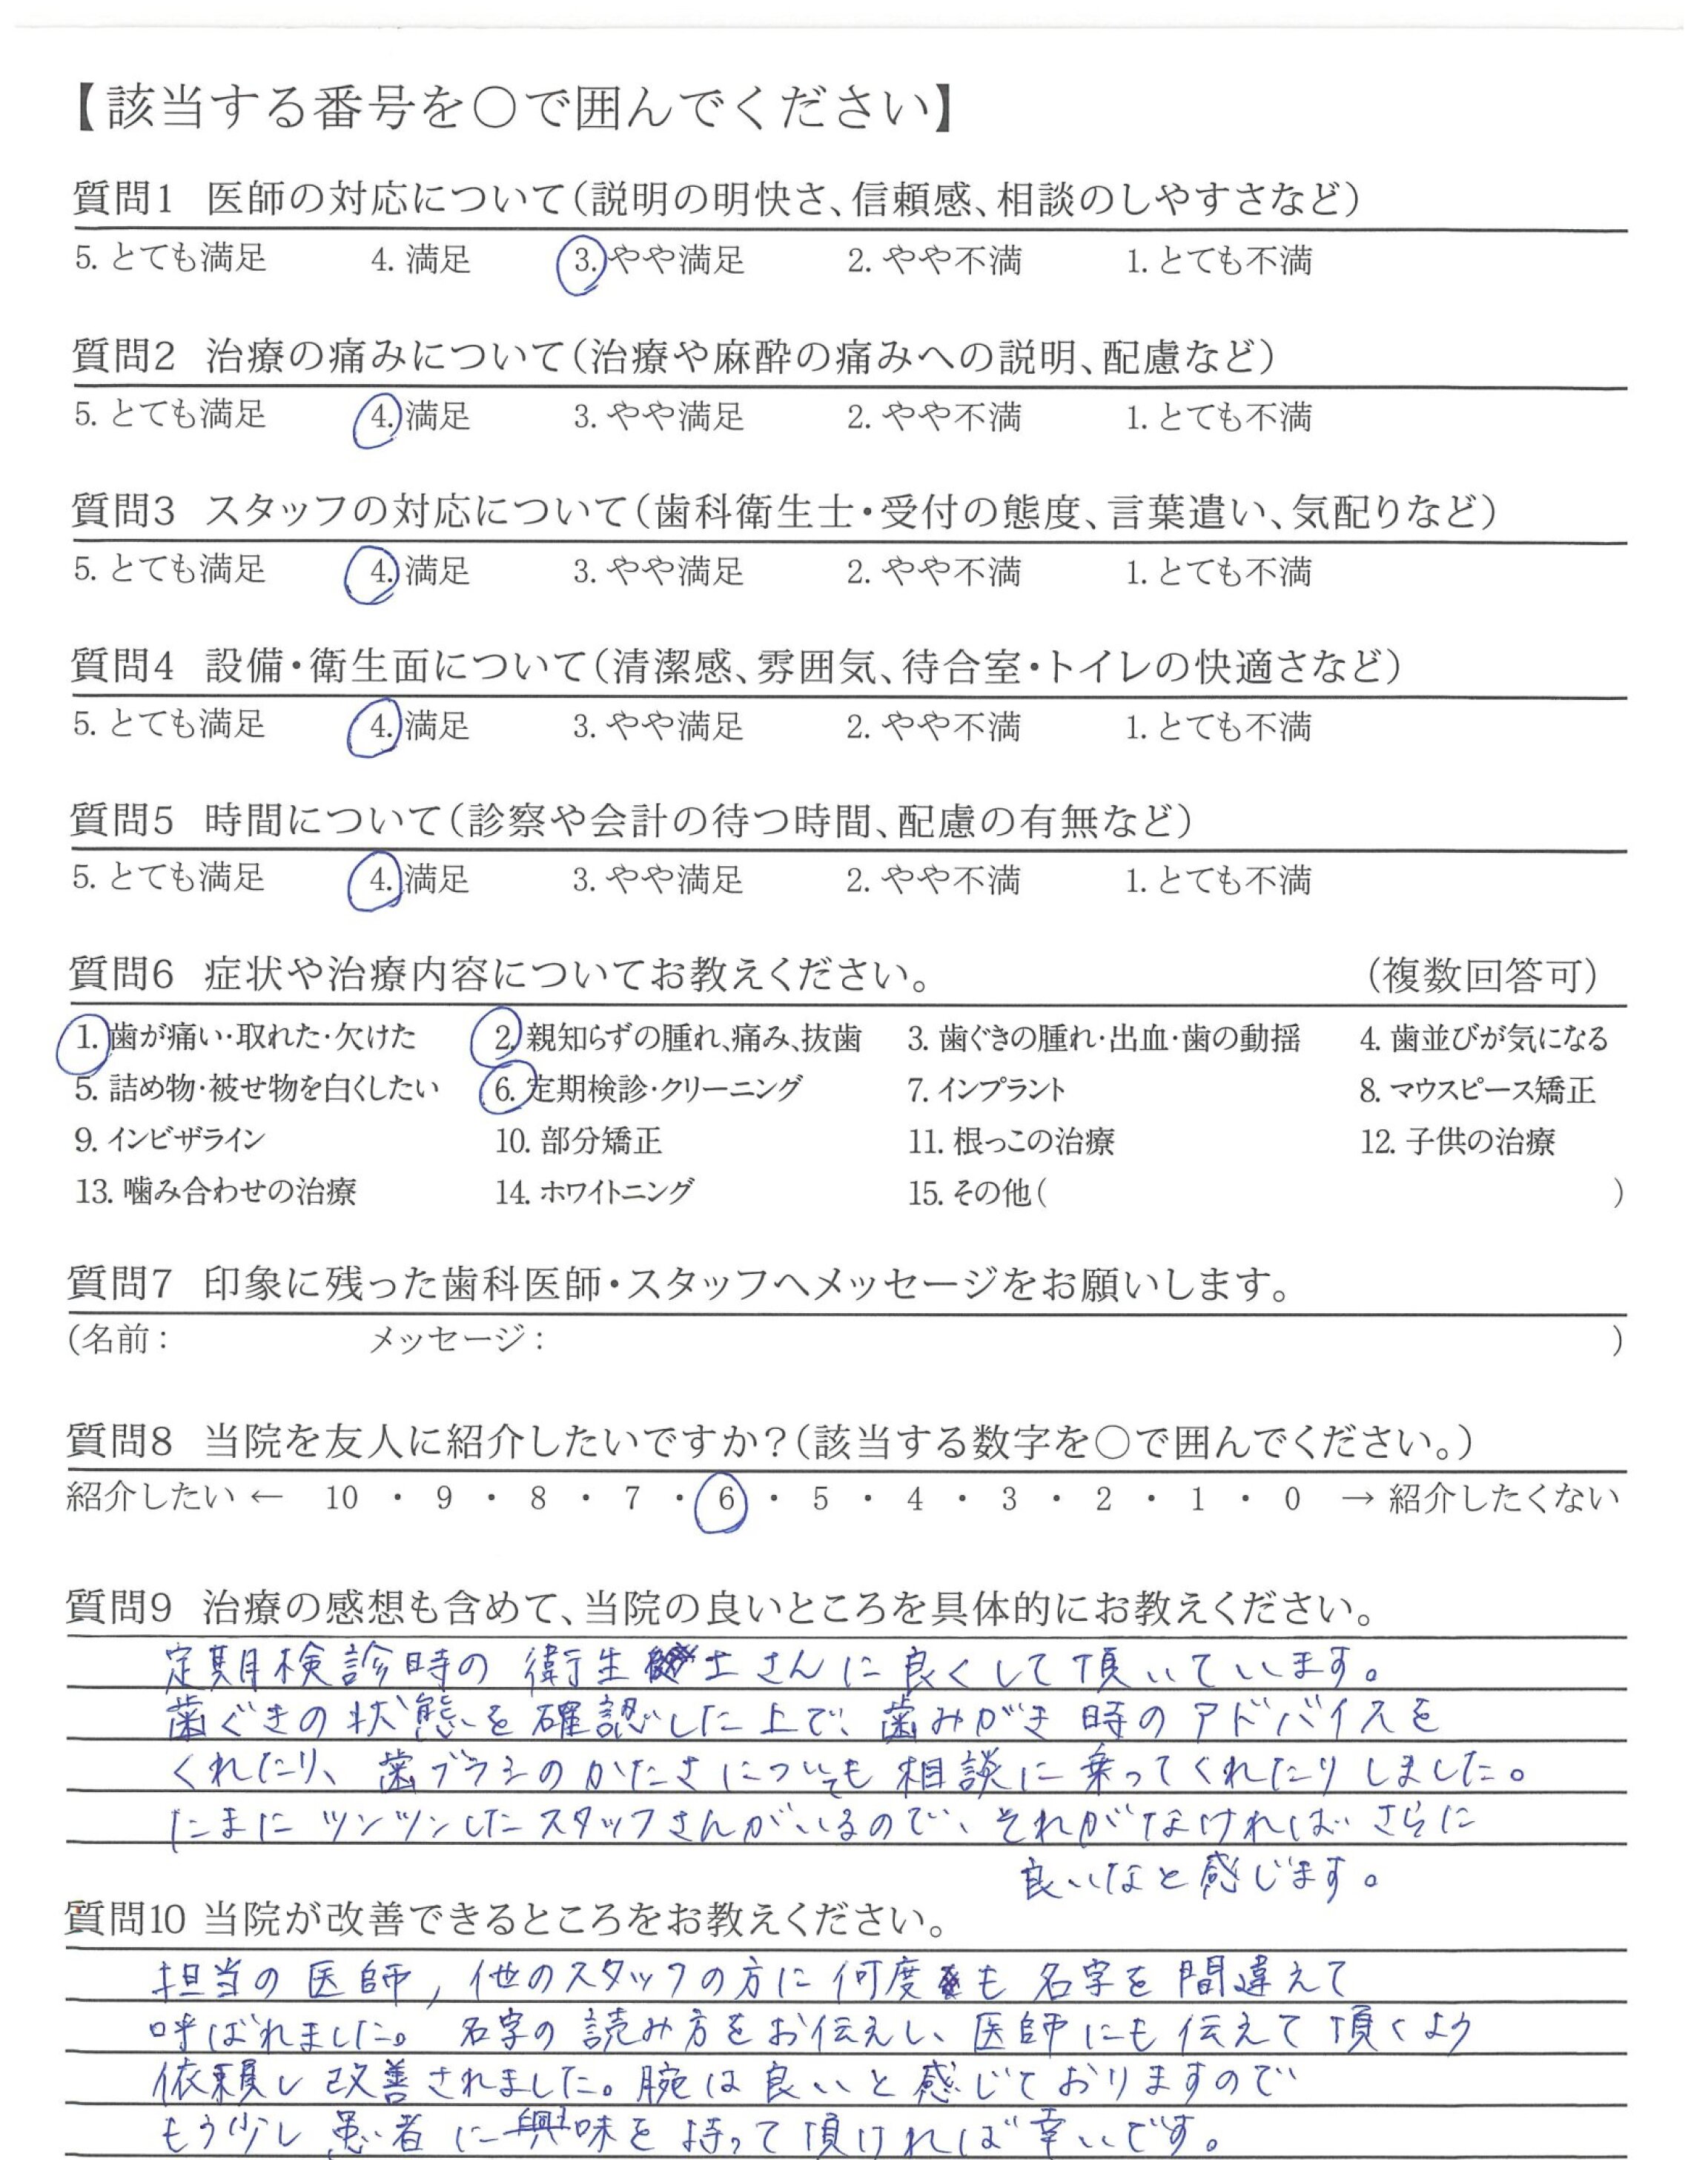 【該当する番号を○で囲んでください】
質問1 医師の対応について(説明の明快さ、信頼感、相談のしやすさなど)
5. とても満足 4. 満足 3. やや満足 2. やや不満 1. とても不満
質問2 治療の痛みについて(治療や麻酔の痛みへの説明、配慮など)
5. とても満足 4. 満足 3. やや満足 2. やや不満 1. とても不満
質問3 スタッフの対応について(歯科衛生士・受付の態度、言葉遣い、気配りなど)
5. とても満足 4. 満足 3. やや満足 2. やや不満 1. とても不満
質問4 設備・衛生面について(清潔感、雰囲気、待合室・トイレの快適さなど)
5. とても満足 4. 満足 3. やや満足 2. やや不満 1. とても不満
質問5 時間について(診察や会計の待つ時間、配慮の有無など)
5. とても満足 4. 満足 3. やや満足 2. やや不満 1. とても不満
質問6 症状や治療内容についてお教えください。 (複数回答可)
1. 歯が痛い・取れた・欠けた 2. 親知らずの腫れ、痛み、抜歯 3. 歯ぐきの腫れ・出血・歯の動揺 4. 歯並びが気になる
5. 詰め物・被せ物を白くしたい 6. 定期検診・クリーニング 7. インプラント 8. マウスピース矯正
9. インビザライン 10. 部分矯正 11. 根っこの治療 12. 子供の治療
13. 噛み合わせの治療 14. ホワイトニング 15. その他( )
質問7 印象に残った歯科医師・スタッフへメッセージをお願いします。
(名前: メッセージ: )
質問8 当院を友人に紹介したいですか?(該当する数字を○で囲んでください。)
紹介したい ← 10 ・ 9 ・ 8 ・ 7 ・ 6 ・ 5 ・ 4 ・ 3 ・ 2 ・ 1 ・ 0 → 紹介したくない
質問9 治療の感想も含めて、当院の良いところを具体的にお教えください。
定期検診時の衛生士さんに良くして頂いています。
歯ぐきの状態を確認した上で、歯みがき時のアドバイスを
くれたり、歯ブラシのかたさについても相談に乗ってくれたりしました。
たまにツンツンしたスタッフさんがいるので、それがなければさらに
良いなと感じます。
質問10 当院が改善できるところをお教えください。
担当の医師,他のスタッフの方に何度も名字を間違えて
呼ばれました。名字の読み方をお伝えし、医師にも伝えて頂くよう
依頼し改善されました。腕は良いと感じておりますので
もう少し患者に興味を持って頂ければ幸いです。